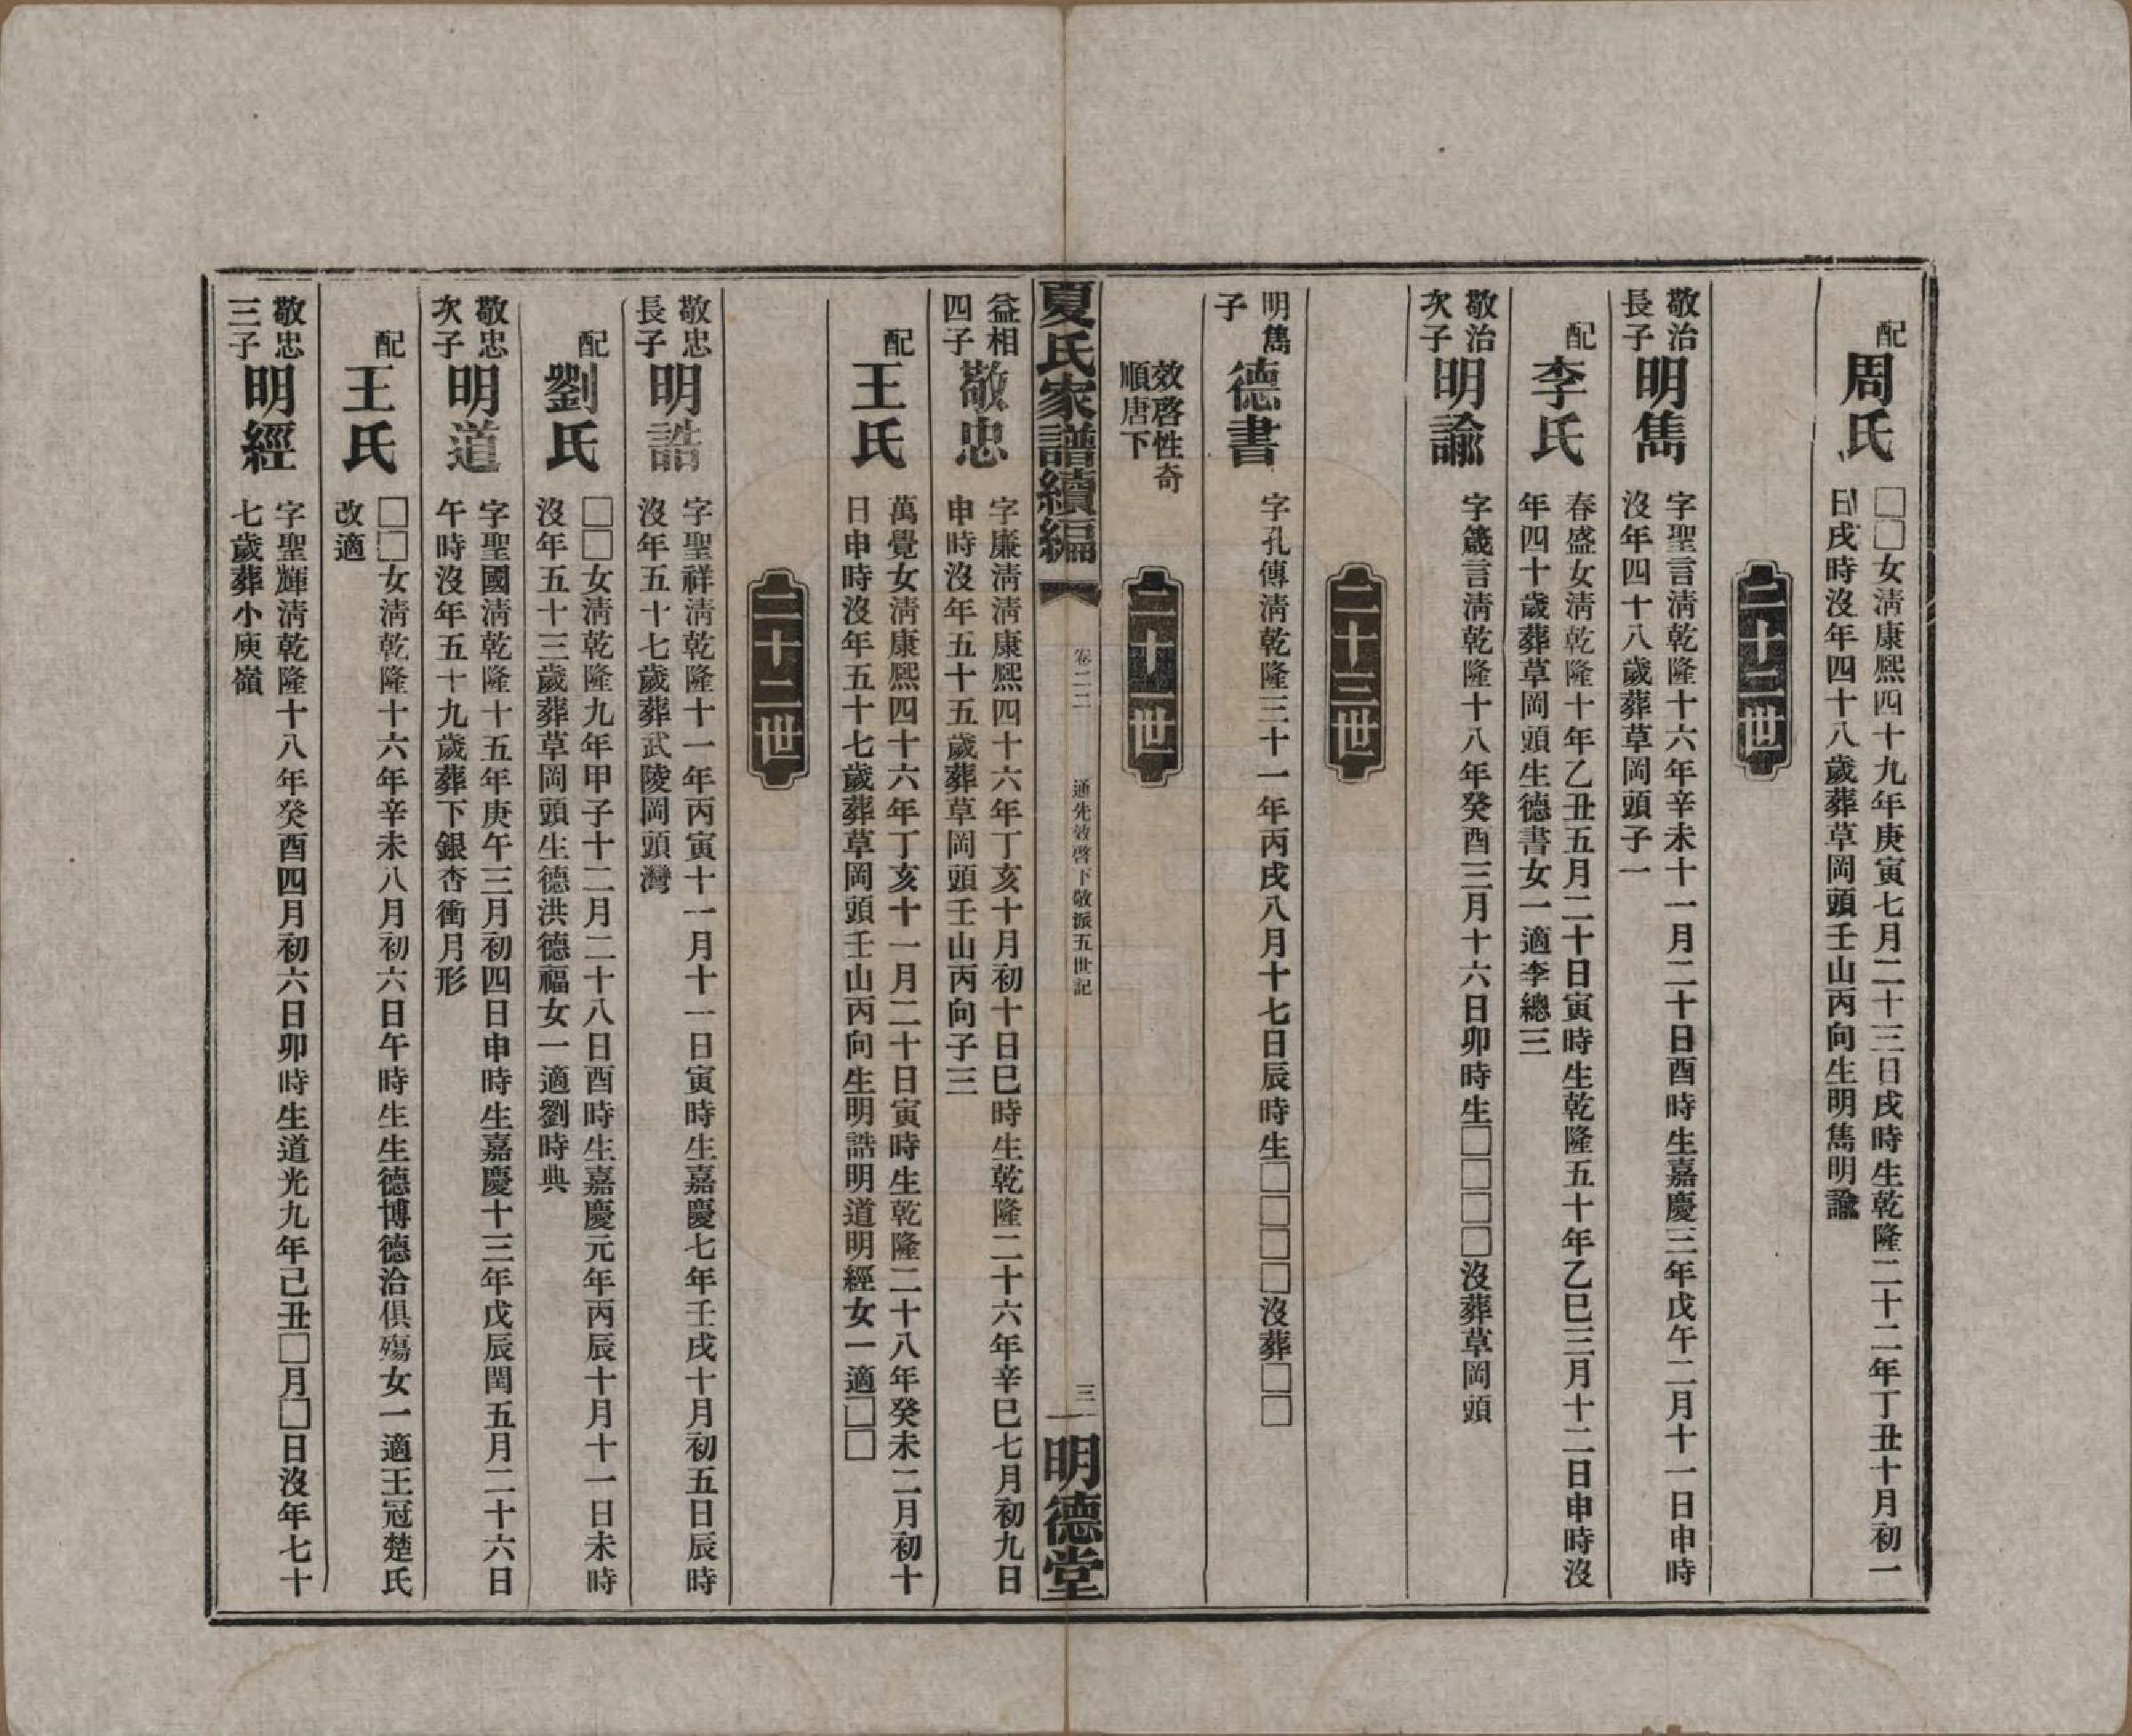 配
周氏
□□女淸康熙四十九年庚寅七月二十三日戌時生乾隆二十二年丁丑十月初一
日戌時沒年四十八歲葬草岡頭壬山丙向生明雋明諭
二十二世
敬治
長子
明雋
字聖言淸乾隆十六年辛未十一月二十日酉時生嘉慶三年戊午二月十一日申時
沒年四十八歲葬草岡頭子一
配
李氏
春盛女淸乾隆十年乙丑五月二十日寅時生乾隆五十年乙巳三月十二日申時沒
年四十歲葬草岡頭生德書女一適李總三
敬治
次子
明諭
字箴言淸乾隆十八年癸酉三月十六日卯時生□□□□沒葬草岡頭
二十三世
明雋
子
德書
字孔傳淸乾隆三十一年丙戌八月十七日辰時生□□□□沒葬□□
效啓性奇
順唐下
二十一世
夏氏家譜續編
卷二二
通先效啓下敬派五世記
三
明德堂
益相
四子
敬忠
字廉淸淸康熙四十六年丁亥十月初十日巳時生乾隆二十六年辛巳七月初九日
申時沒年五十五歲葬草岡頭壬山丙向子三
配
王氏
萬覺女淸康熙四十六年丁亥十一月二十日寅時生乾隆二十八年癸未二月初十
日申時沒年五十七歲葬草岡頭壬山丙向生明誥明道明經女一適□□
二十二世
敬忠
長子
明誥
字聖祥淸乾隆十一年丙寅十一月十一日寅時生嘉慶七年壬戌十月初五日辰時
沒年五十七歲葬武陵岡頭灣
配
劉氏
□□女淸乾隆九年甲子十二月二十八日酉時生嘉慶元年丙辰十月十一日未時
沒年五十三歲葬草岡頭生德洪德福女一適劉時典
敬忠
次子
明道
字聖國淸乾隆十五年庚午三月初四日申時生嘉慶十三年戊辰閏五月二十六日
午時沒年五十九歲葬下銀杏衝月形
配
王氏
□□女淸乾隆十六年辛未八月初六日午時生生德博德洽俱殤女一適王冠楚氏
改適
敬忠
三子
明經
字聖輝淸乾隆十八年癸酉四月初六日卯時生道光九年己丑□月□日沒年七十
七歲葬小庾嶺